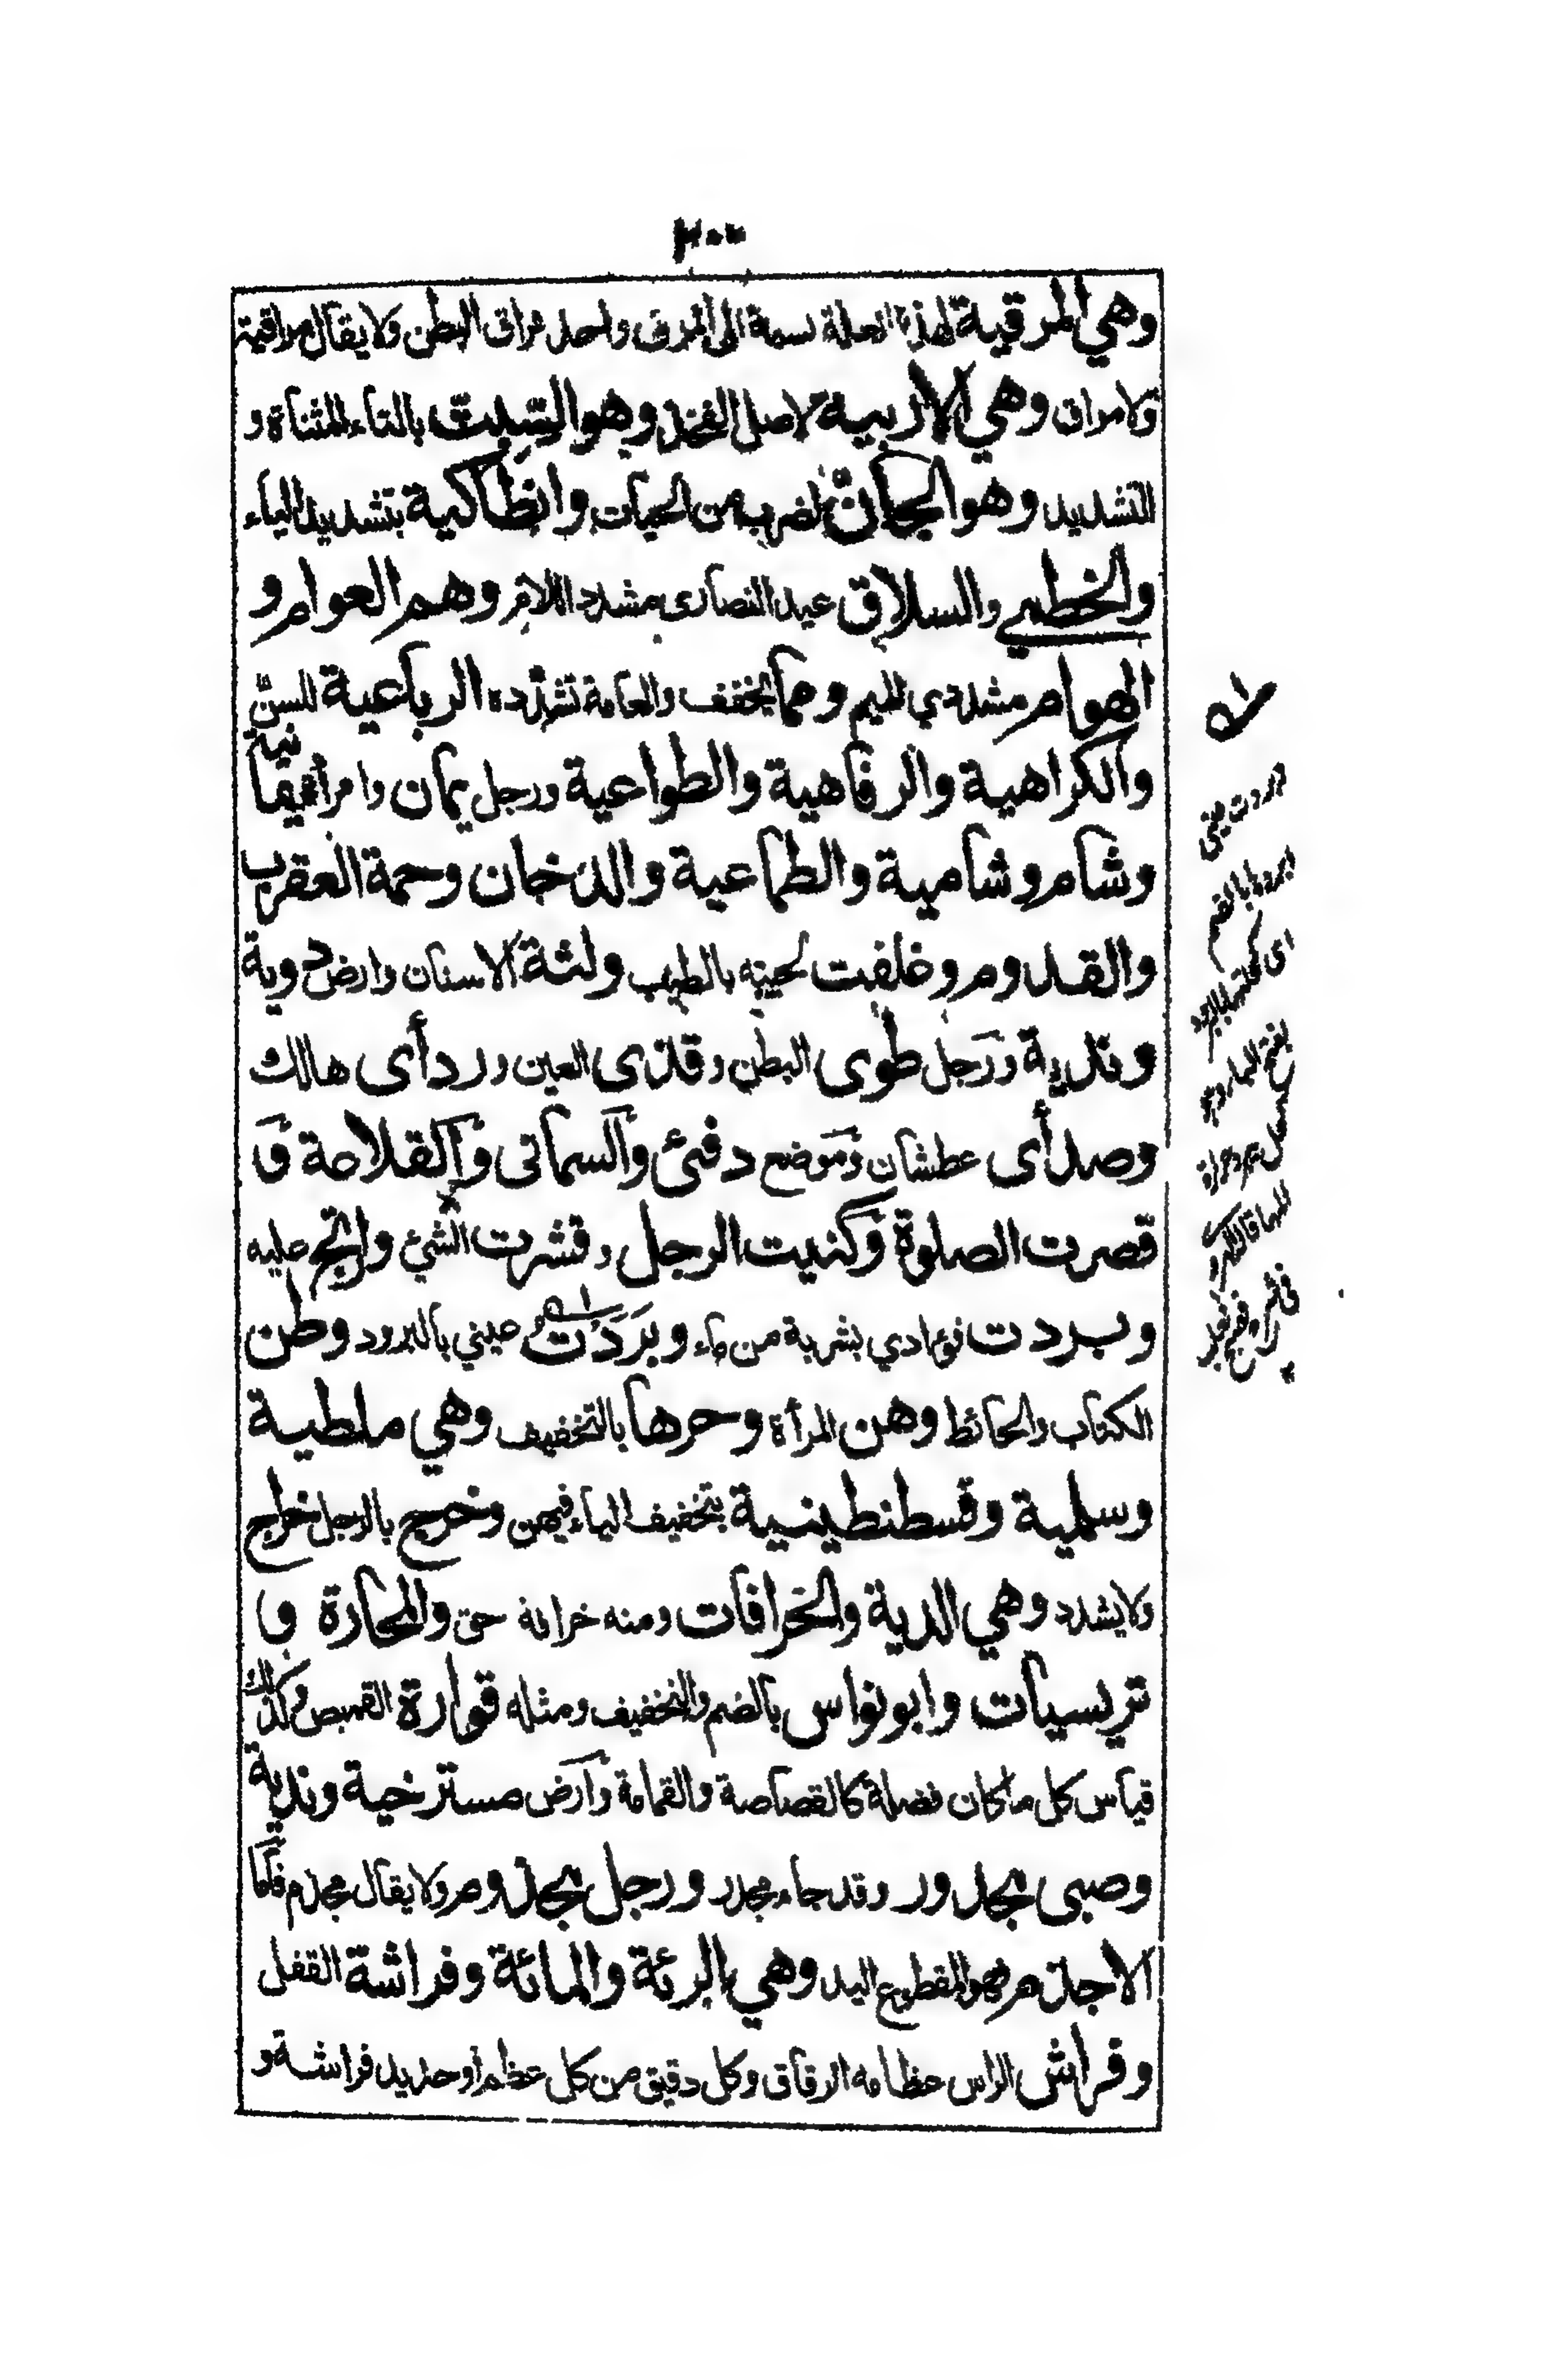 ٢٠٠
وهي المرقية لهذه العلة نسبة الى المرق واحد مراق البطن ولا يقال مراقية
ولا مراق وهي الاربية لاصل الفخذ وهو السبت بالتاء المثناة و
التشديد وهو الجان لضرب من الحيات وانطاكية بتشديد الياء
والخطمي والسلاق عيد النصارى مشدد اللام وهم العوام و
الهوام مشددي الميم ومما يخفف والعامة تشدده الرباعية للسن
والكراهية والرفاهية والطواعية ورجل يمان وامرأة يمانية
وشام وشامية والطماعية والدخان وحمة العقرب
والقدوم وغلفت لحيته بالطيب ولثة الاسنان وارض دوية
وندية ورجل طوى البطن وقذى العين ورد أى هالك
وصد أى عطشان وموضع دفئ والسمانى والقلاعة و
قصرت الصلوة وكنيت الرجل وقشرت الشيء وارتج عليه
وبردت فؤادي بشربة من ماء وبردت عيني بالبرود وطن
الكتاب والحائط وهن المرأة وحرها بالتخفيف وهي ملطية
وسلمية وقسطنطينية بتخفيف الياء فيهن وخرج بالرجل خراج
ولا يشدد وهي الدية والخرافات ومنه خرافة حق والمحارة و
تريسيات وابو نواس بالضم والتخفيف ومثله قوارة القميص وكذلك
قياس كل ما كان فضلة كالقصاصة والقمامة وارض مسترخية وندية
وصبى مجدور وقد جاء مجدر ورجل مجذوم ولا يقال مجذم فاما
الاجذم فهو المقطوع اليد وهي الرئة والمائة وفراشة القفل
وفراش الراس عظامه الرقاق وكل دقيق من كل عظم أو حديد فراشة و
بردت عيني
ابردها بالضم
اى كحلتها بالبرود